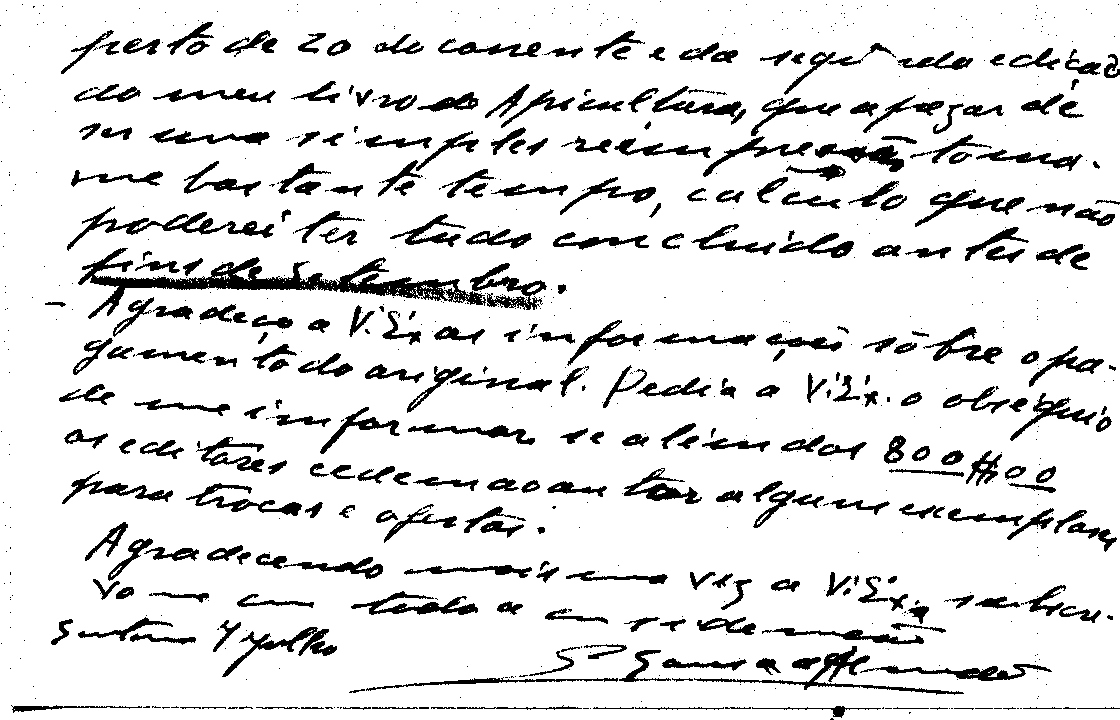 perto de 20 do corrente e da segunda edicaõ
do meu livro de Apicultura, que apezar de
ser uma simples reimpressão, toma-
me bastante tempo, calculo que não
poderei ter tudo concluido antes de
fins de Setembro.
- Agradeço a V.Ex. as informações sôbre o pa-
gamento do original. Pedia a V.Ex. o obsequio
de me informar se além dos 800$00
os editores cedem ao autor alguns exemplares
para trocas e ofertas.
Agradecendo mais uma vez a V.Ex.a subscr-
vo me com toda a consideração
4 Julho
d'Almeida